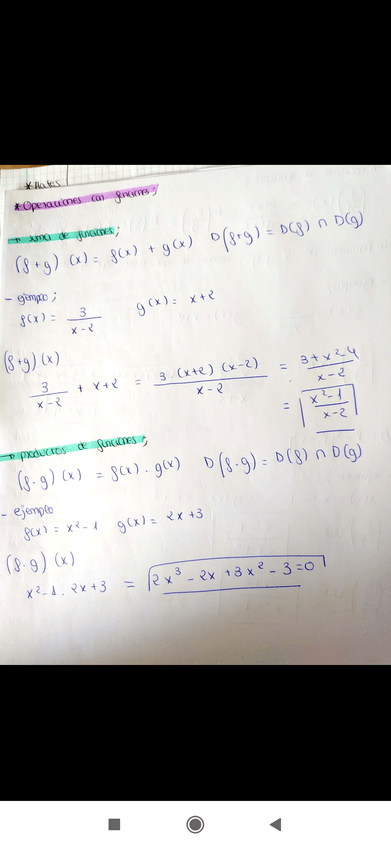 * Mates
* Operaciones con funciones;
→ suma de funciones;
(f+g) (x) = f(x) + g(x) D(f+g) = D(f) ∩ D(g)
- ejemplo;
f(x) = 3/(x-2) g(x) = x+2
(f+g) (x)
3/(x-2) + x+2 = 3·(x+2)(x-2)/(x-2) = 3+x²-4/(x-2)
= x²-1/(x-2)
→ productos de funciones;
(f·g) (x) = f(x) · g(x) D(f·g) = D(f) ∩ D(g)
- ejemplo
f(x) = x²-1 g(x) = 2x+3
(f·g) (x)
x²-1 · 2x+3 = 2x³ - 2x + 3x² - 3 = 0